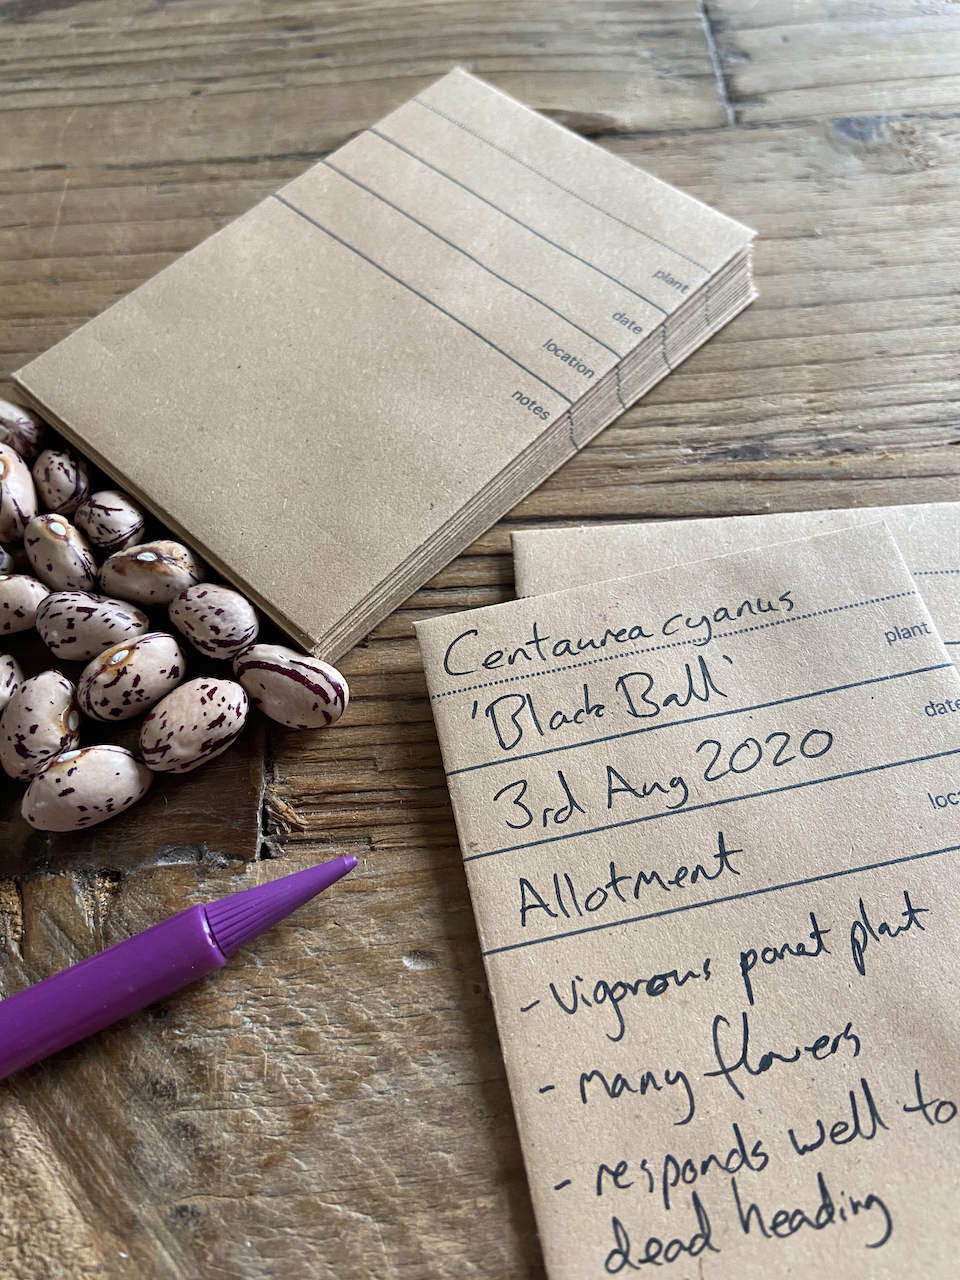 plant
date
location
notes
Centaurea cyanus
plant
'Black Ball'
date
3rd Aug 2020
loca
Allotment
- vigorous paret plant
- many flowers
- responds well to
dead heading